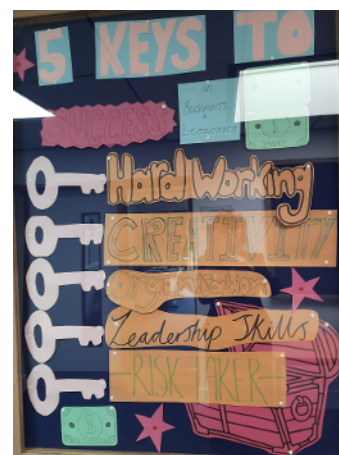 5 KEYS TO
SUCCESS
in
Business
&
Economics
Hard Working
CREATIVITY
Organisation
Leadership Skills
RISK TAKER